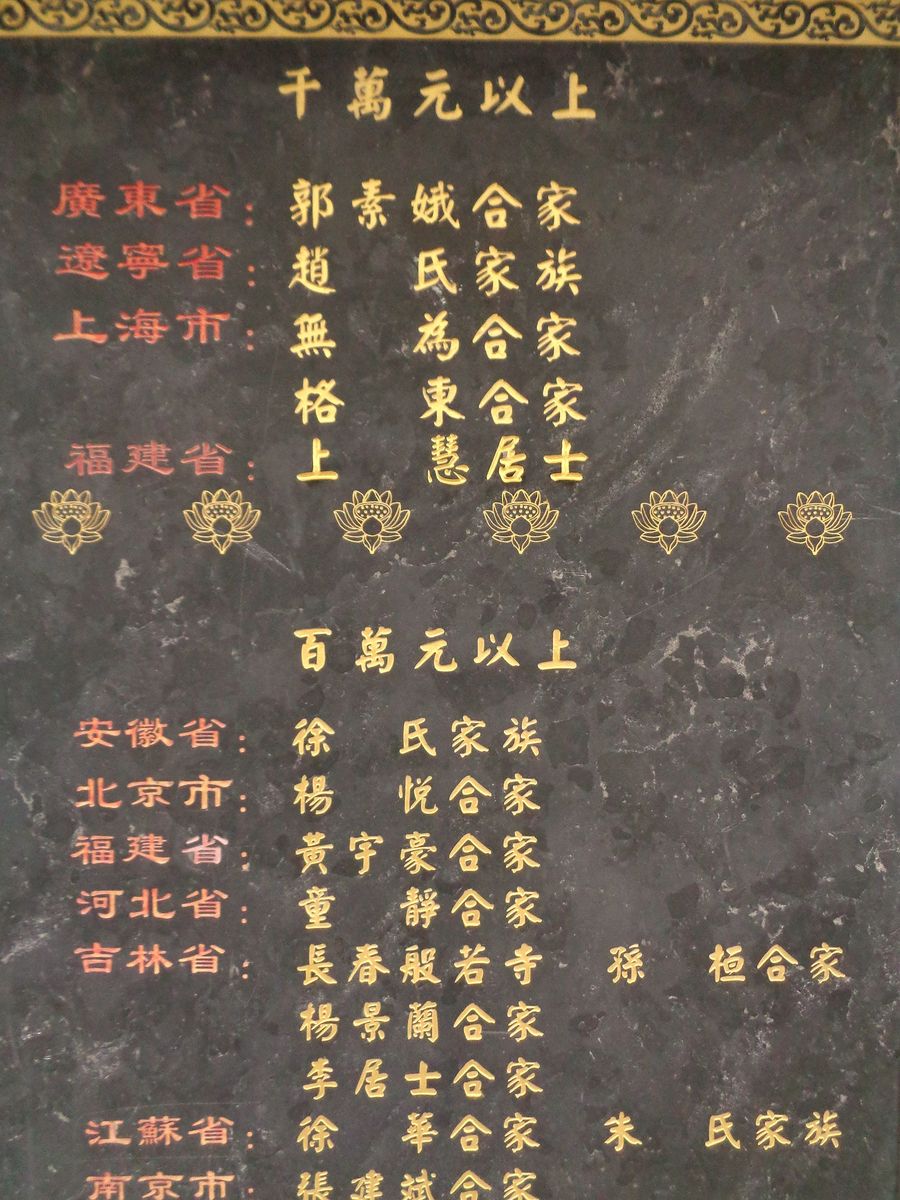 千萬元以上
廣東省：郭素娥合家
遼寧省：趙 氏家族
上海市：無 為合家
格 東合家
福建省：上 慧居士
百萬元以上
安徽省：徐 氏家族
北京市：楊 悅合家
福建省：黃宇豪合家
河北省：童 靜合家
吉林省：長春般若寺 孫 桓合家
楊景蘭合家
李居士合家
江蘇省：徐 華合家 朱 氏家族
南京市：張建斌合家